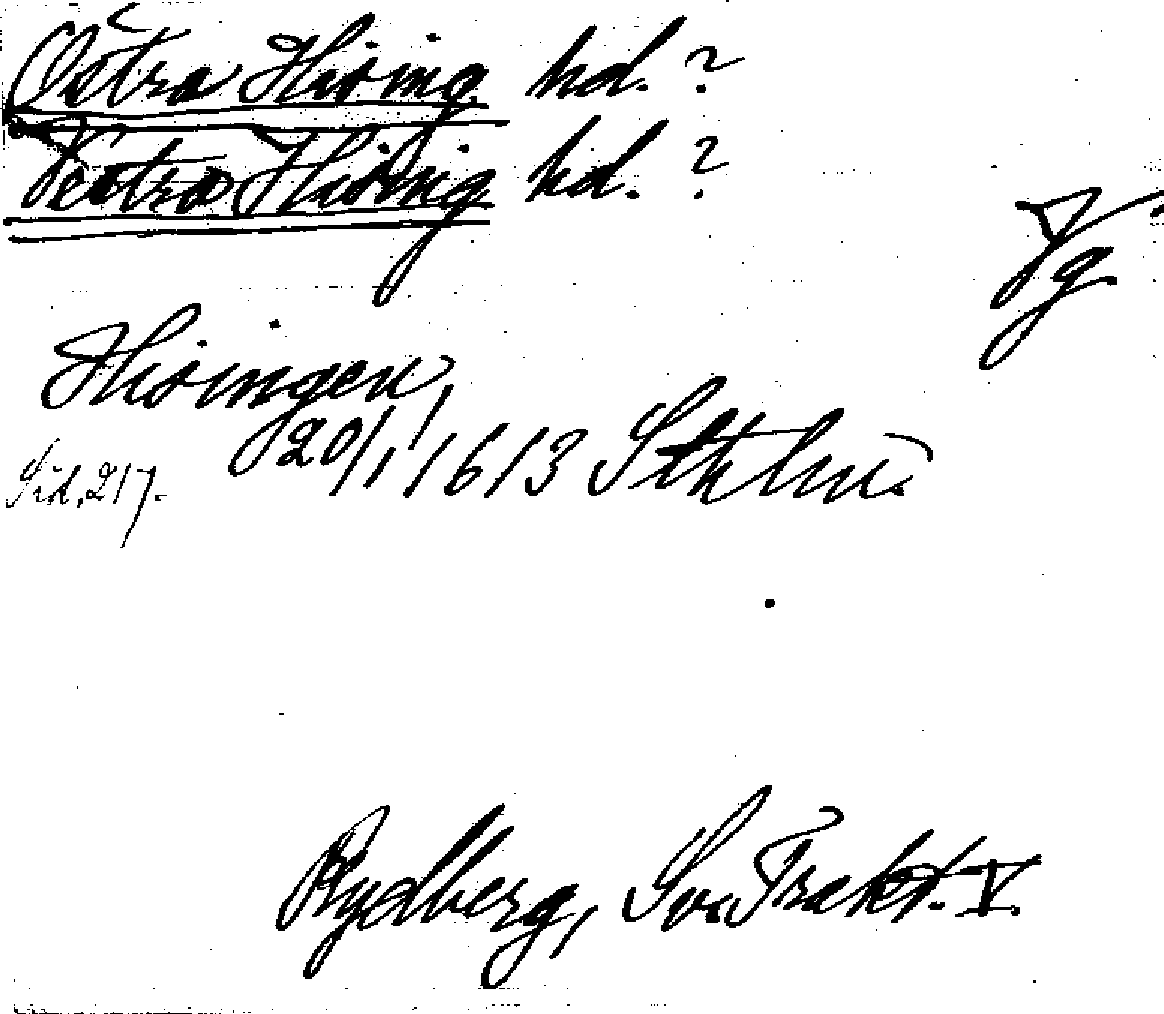 Östra Hising hd. ?
Västra Hising hd. ?
Vg
Hisingen,
20/1 1613 Sthlm.
Sid. 217.
Rydberg, Sv. Trakt. V.